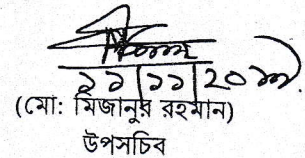 ১১/১১/২০১৯
(মো: মিজানুর রহমান)
উপসচিব